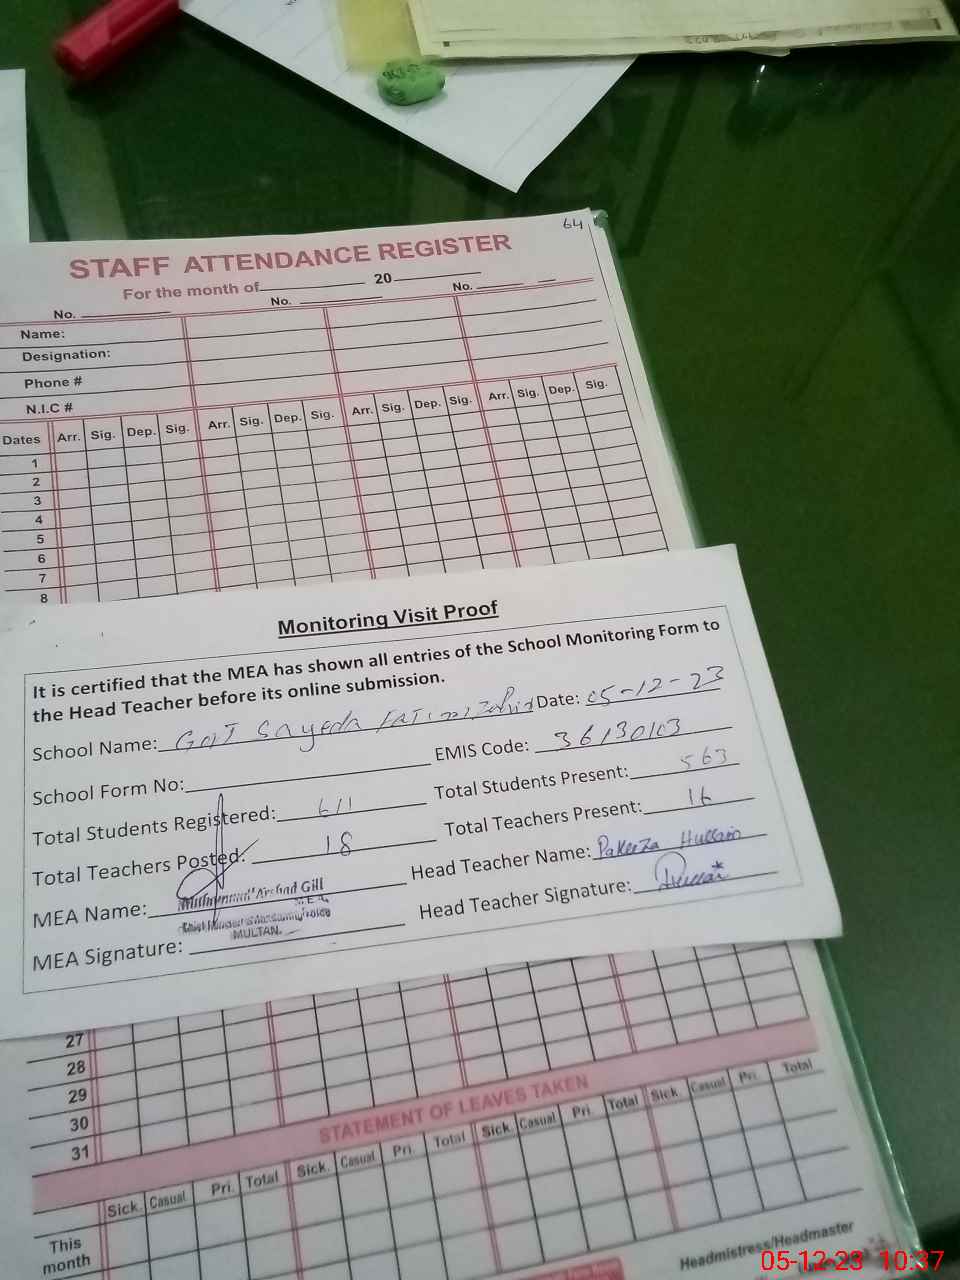 64
STAFF ATTENDANCE REGISTER
For the month of 20
No. No. No.
Name:
Designation:
Phone #
N.I.C #
Dates Arr. Sig. Dep. Sig. Arr. Sig. Dep. Sig. Arr. Sig. Dep. Sig. Arr. Sig. Dep. Sig.
1
2
3
4
5
6
7
8
Monitoring Visit Proof
It is certified that the MEA has shown all entries of the School Monitoring Form to
the Head Teacher before its online submission.
School Name: Sayeda Date: 05-12-23
School Form No: EMIS Code: 36130103
Total Students Registered: 611 Total Students Present: 563
Total Teachers Posted: 18 Total Teachers Present: 16
MEA Name: Muhammad Arshad Gill Head Teacher Name: Pakeeza Hussain
M.E.A
MULTAN.
MEA Signature: Head Teacher Signature:
27
28
29
30
31
STATEMENT OF LEAVES TAKEN
Sick. Casual Pri. Total Sick. Casual Pri. Total Sick. Casual Pri. Total Sick. Casual Pri. Total
This
month
Headmistress/Headmaster
05-12-23 10:37